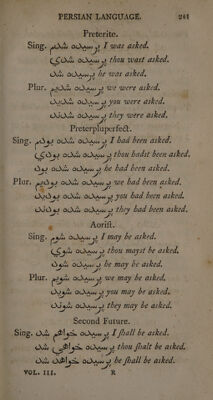 PERSIAN LANGUAGE. 241
Preterite.
Sing. پرسیده شدم I was asked.
پرسیده شدی thou wast asked.
پرسیده شد he was asked.
Plur. پرسیده شدیم we were asked.
پرسیده شدید you were asked.
پرسیده شدند they were asked.
Preterpluperfect.
Sing. پرسیده شده بودم I had been asked.
پرسیده شده بودی thou hadst been asked.
پرسیده شده بود he had been asked.
Plur. پرسیده شده بودیم we had been asked.
پرسیده شده بودید you had been asked.
پرسیده شده بودند they had been asked.
Aorist.
Sing. پرسیده شوم I may be asked.
پرسیده شوی thou mayst be asked.
پرسیده شود he may be asked.
Plur. پرسیده شویم we may be asked.
پرسیده شوید you may be asked.
پرسیده شوند they may be asked.
Second Future.
Sing. پرسیده خواهم شد I ſhall be asked.
پرسیده خواهی شد thou ſhalt be asked.
پرسیده خواهد شد he ſhall be asked.
VOL. III. R